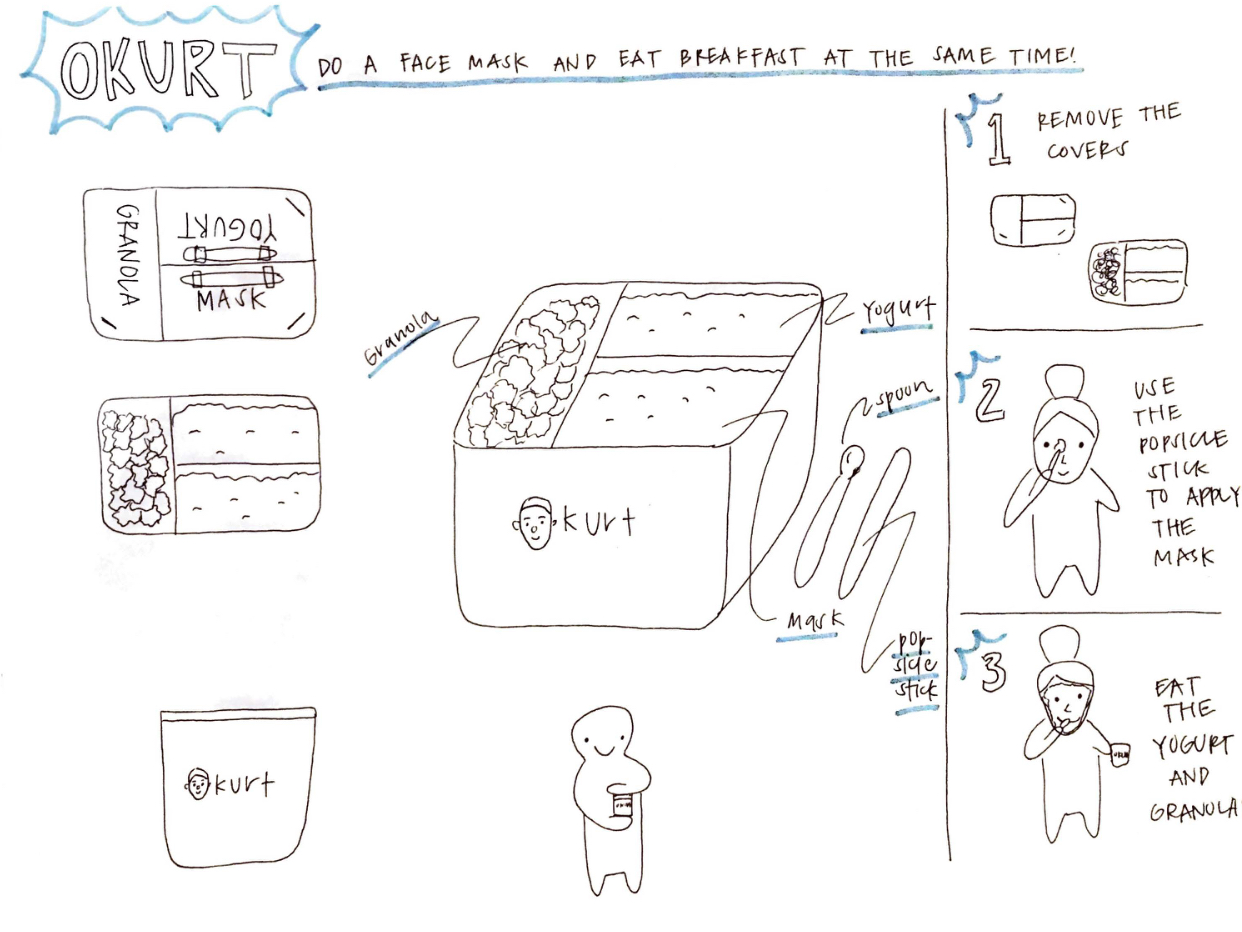 OKURT
DO A FACE MASK AND EAT BREAKFAST AT THE SAME TIME!
GRANOLA
YOGURT
MASK
Granola
Yogurt
spoon
kurt
Mask
pop-
sicle
stick
kurt
1 REMOVE THE
COVERS
2 USE
THE
POPSICLE
STICK
TO APPLY
THE
MASK
3 EAT
THE
YOGURT
AND
GRANOLA